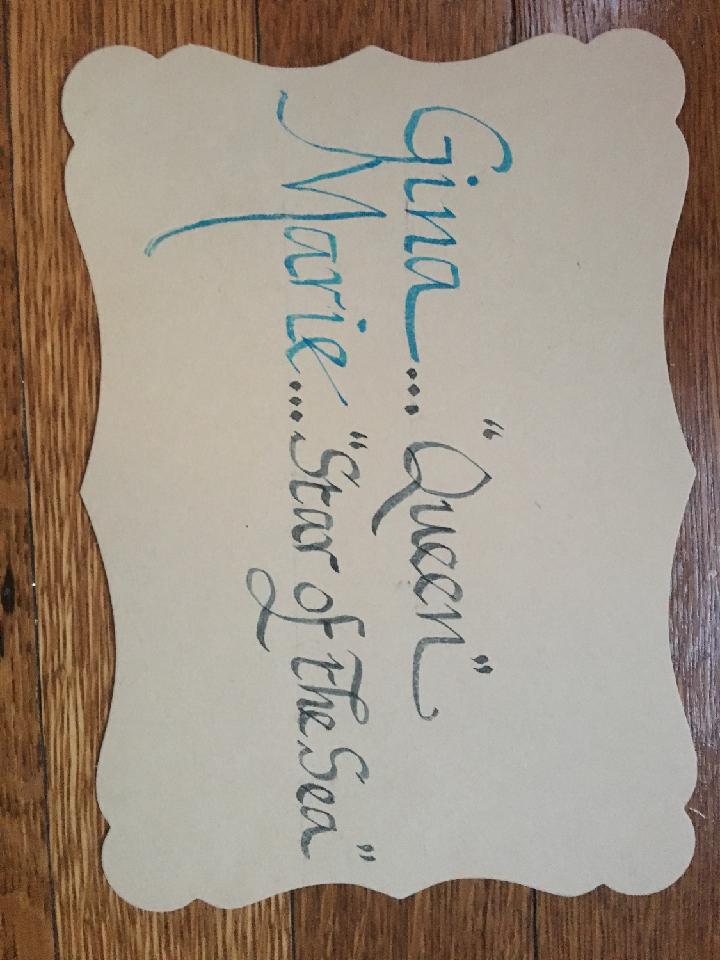 Gina... "Queen"
Marie... "Star of the Sea"